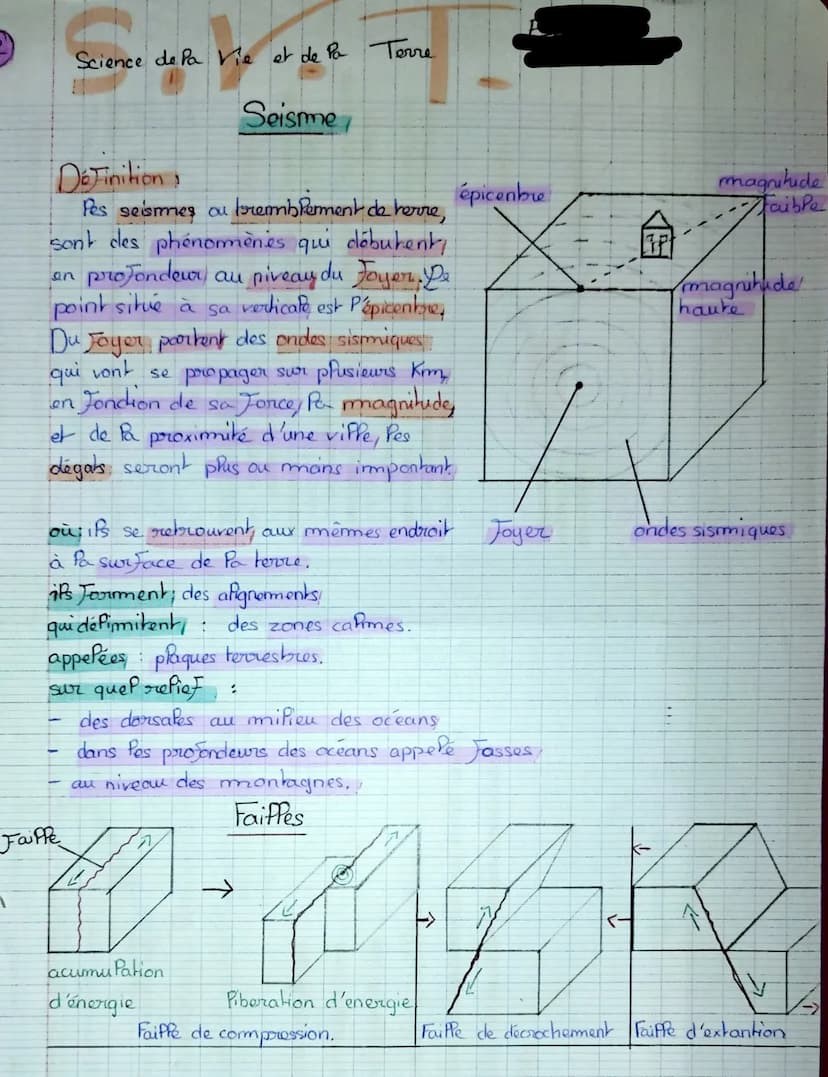 S.V.T.
Science de la Vie et de la Terre
Seisme
Définition :
les seismes ou tremblement de terre,
sont des phénomènes qui débutent,
en profondeur au niveau du foyer, le
point situé à sa verticale est l'épicentre,
Du foyer partent des ondes sismiques
qui vont se propager sur plusieurs Km,
en fonction de sa force, la magnitude,
et de la proximité d'une ville, les
dégats seront plus ou moins important
épicentre
magnitude
faible
magnitude
haute
foyer
ondes sismiques
où; ils se retrouvent, aux mêmes endroit
à la surface de la terre.
ils forment; des alignements
qui délimitent, : des zones calmes.
appelées : plaques terrestres.
sur quel relief :
- des dorsales au milieu des océans
- dans les profondeurs des océans appelé fosses
- au niveau des montagnes.
Failles
Faille
acumulation
d'énergie
liberation d'energie
Faille de compression.
Faille de décrochement
Faille d'extantion